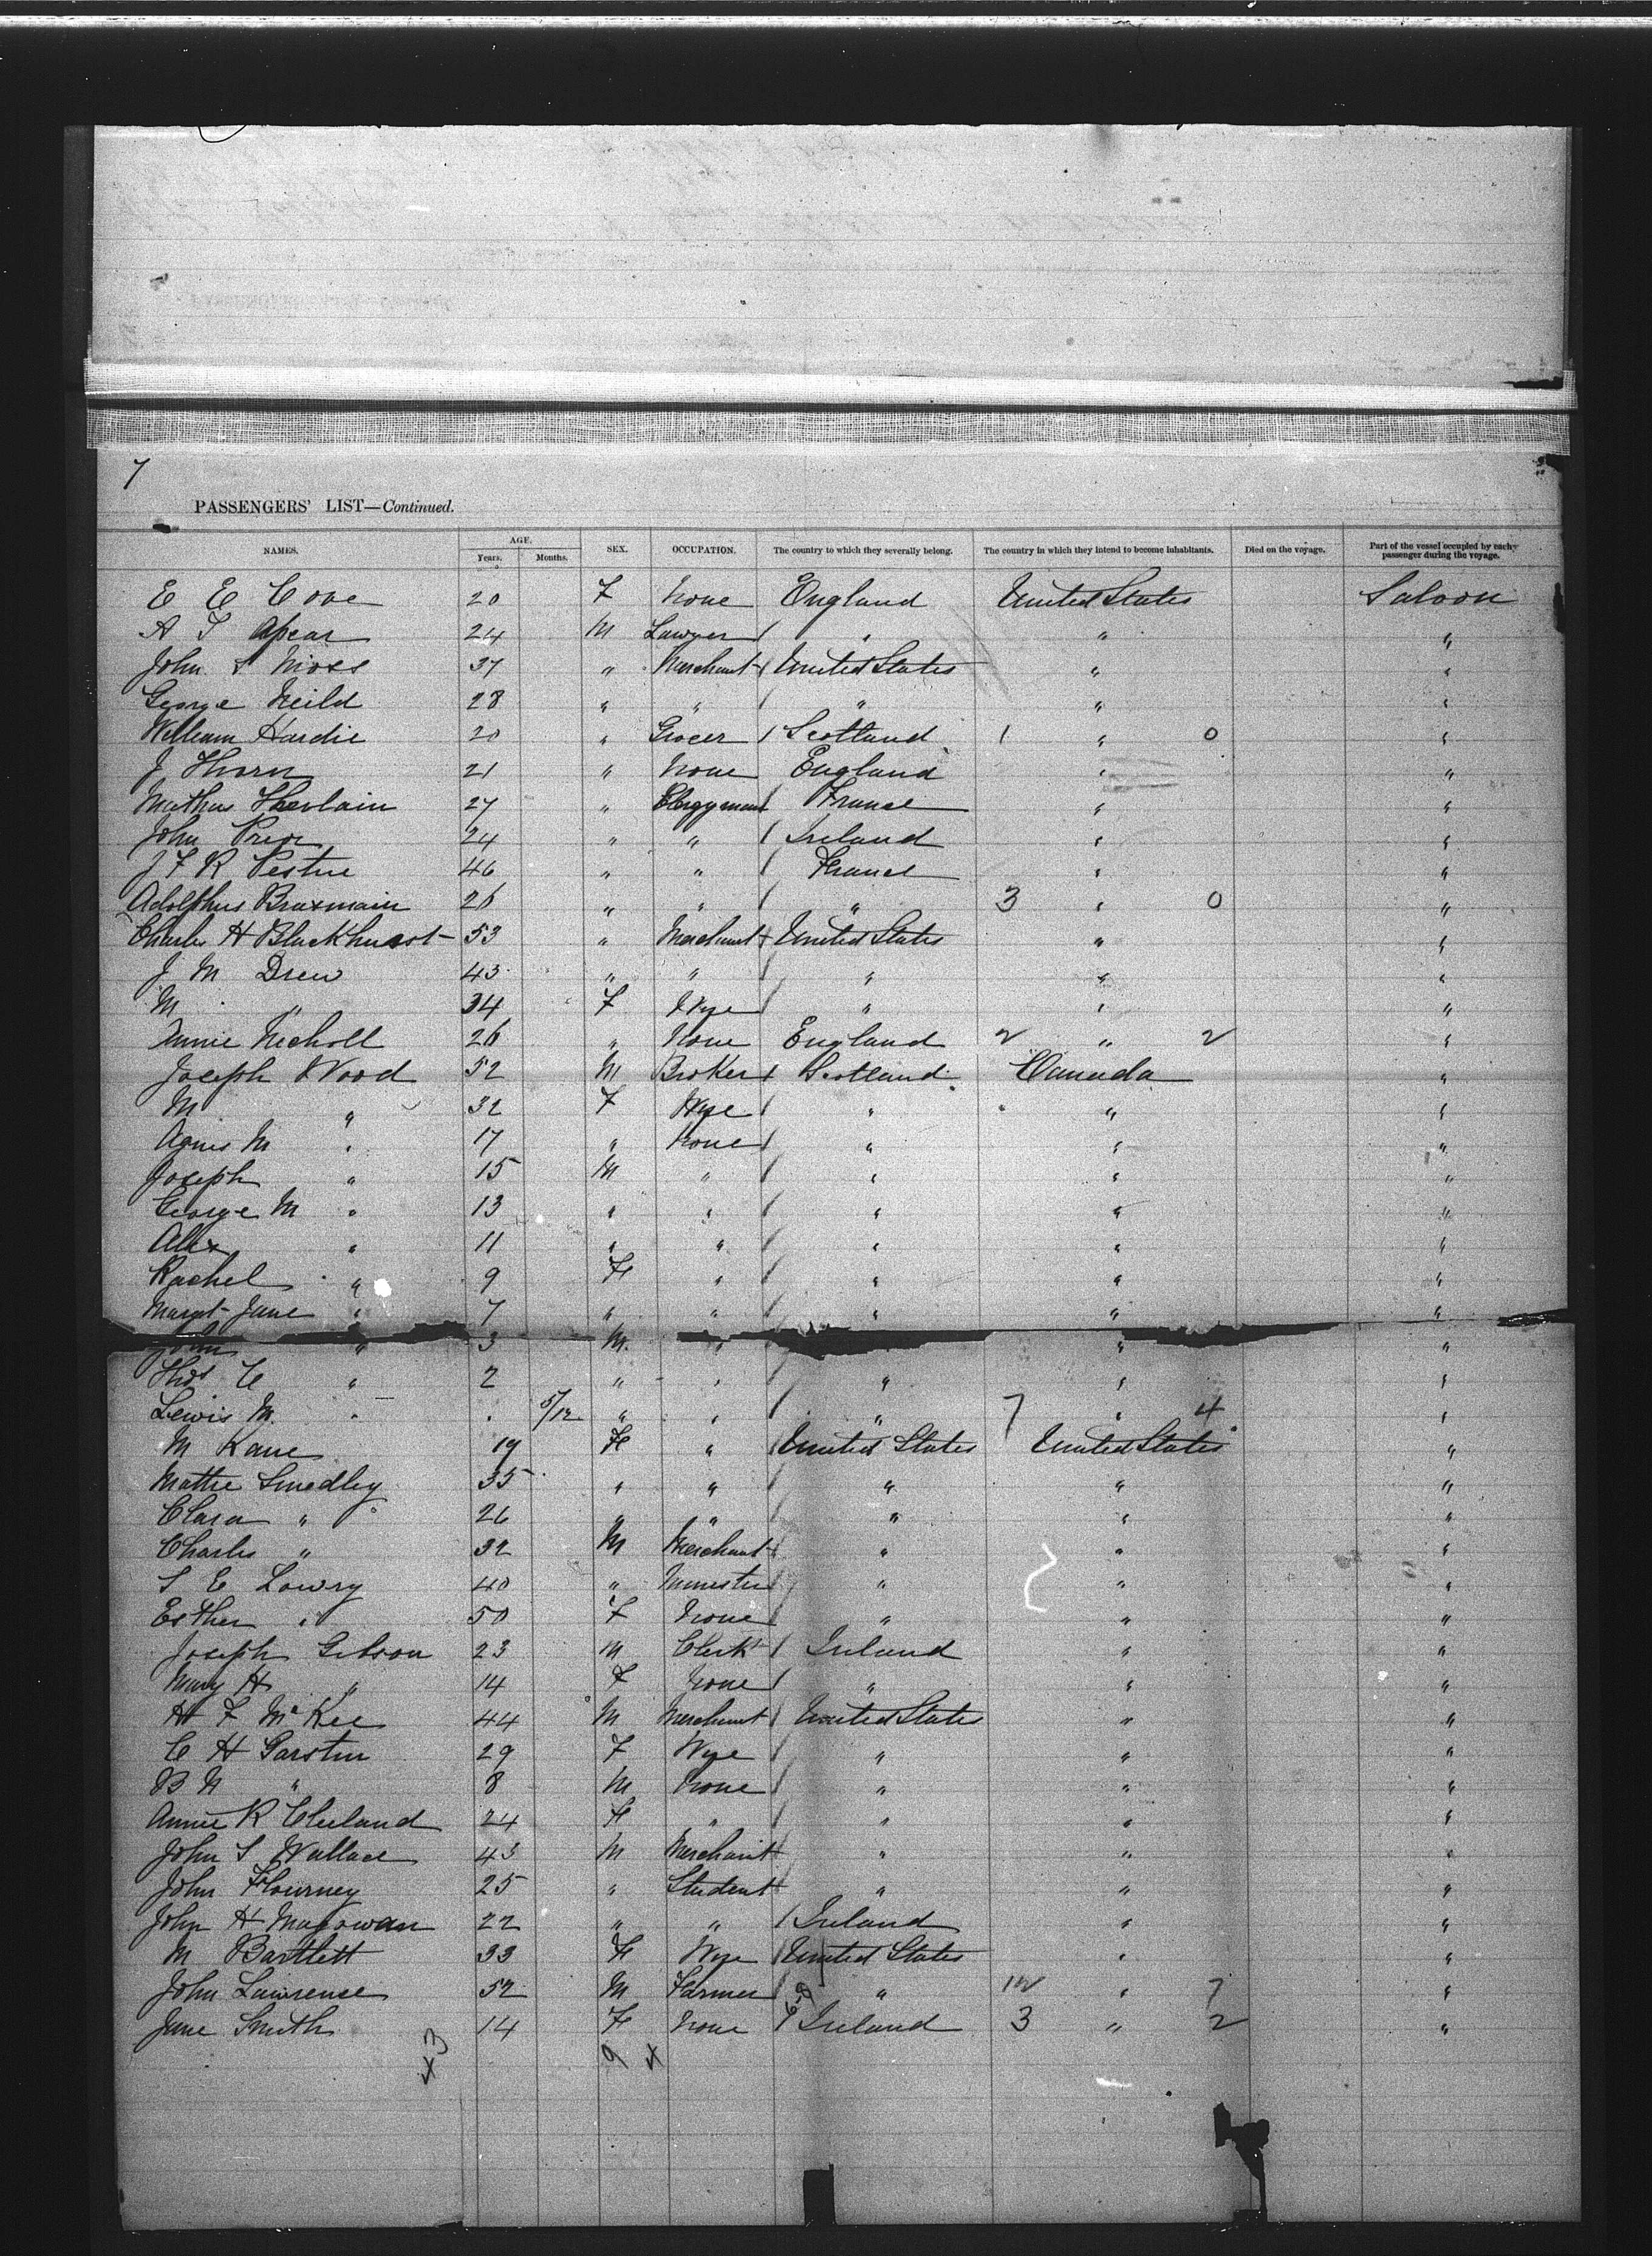 7
PASSENGERS' LIST—Continued.
NAMES. AGE. Years. Months. SEX. OCCUPATION. The country to which they severally belong. The country in which they intend to become inhabitants. Died on the voyage. Part of the vessel occupied by each passenger during the voyage.
E E Cove 20 F None England United States Saloon
A T Apcar 24 M Lawyer / " " "
John S Moss 37 " Merchant / United States " "
George Neild 28 " " / " " "
William Hardie 20 " Grocer / Scotland 1 " 0 "
J Thorn 21 " None England " "
Mathus 27 " Clergyman / France " "
John Prior 24 " " / Ireland " "
J F R Pestre 46 " " / France " "
Adolphus Bruxmain 26 " " / " 3 " 0 "
Charles H Blackhurst 53 " Merchant / United States " "
J M Drew 43 " " / " " "
M " 34 F Wife / " " "
Annie Nicholl 26 " None England 2 " 2 "
Joseph Wood 52 M Broker / Scotland Canada "
M " 32 F Wife / " " "
Agnes M " 17 " None / " " "
Joseph " 15 M " / " " "
George M " 13 " " / " " "
Alex " 11 " " / " " "
Rachel " 9 F " / " " "
Margt Jane " 7 " " / " " "
John " 3 M " " "
Thos C " 2 " " / " " "
Lewis M. " 5/12 " " / " 7 " 4 "
M Kane 19 F " / United States United States "
Mattie Smedley 35 " " / " " "
Clara " 26 " " / " " "
Charles " 32 M Merchant / " " "
S E Lowry 40 " Minister / " " "
Esther " 50 F None / " " "
Joseph Gibson 23 M Clerk / Ireland " "
Mary H " 14 F None / " " "
H F McKee 44 M Merchant / United States " "
C H Garstin 29 F Wife / " " "
B N " 8 M None / " " "
Annie R Cleland 24 F " / " " "
John S Wallace 43 M Merchant " " "
John Flourney 25 " Student / " " "
John H Magowan 22 " " / Ireland " "
M Bartlett 33 F Wife / United States " "
John Lawrence 52 M Farmer / " 12 " 7 "
Jane Smith 14 F None / Ireland 3 " 2 "